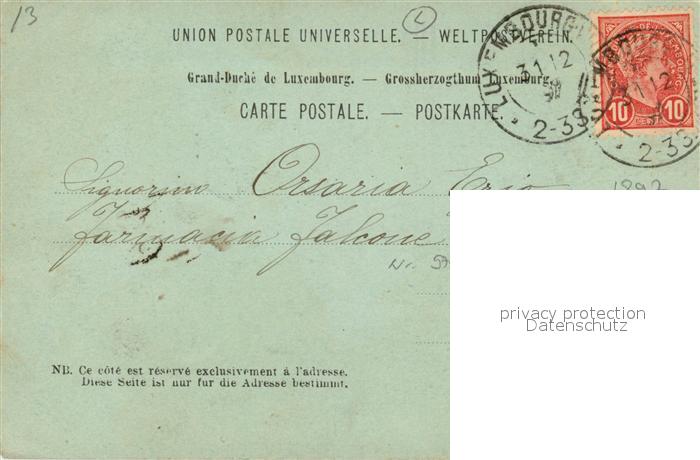 13
L
UNION POSTALE UNIVERSELLE. — WELTPOSTVEREIN.
Grand-Duché de Luxembourg. — Grossherzogthum Luxemburg.
CARTE POSTALE. — POSTKARTE.
LUXEMBOURG
31 12
2-3S
31 12
2-3S
10 10
Signorina Orsaria Erio
Farmacia Falcone
1897
privacy protection
Datenschutz
NB. Ce côté est réservé exclusivement à l'adresse.
Diese Seite ist nur fur die Adresse bestimmt.